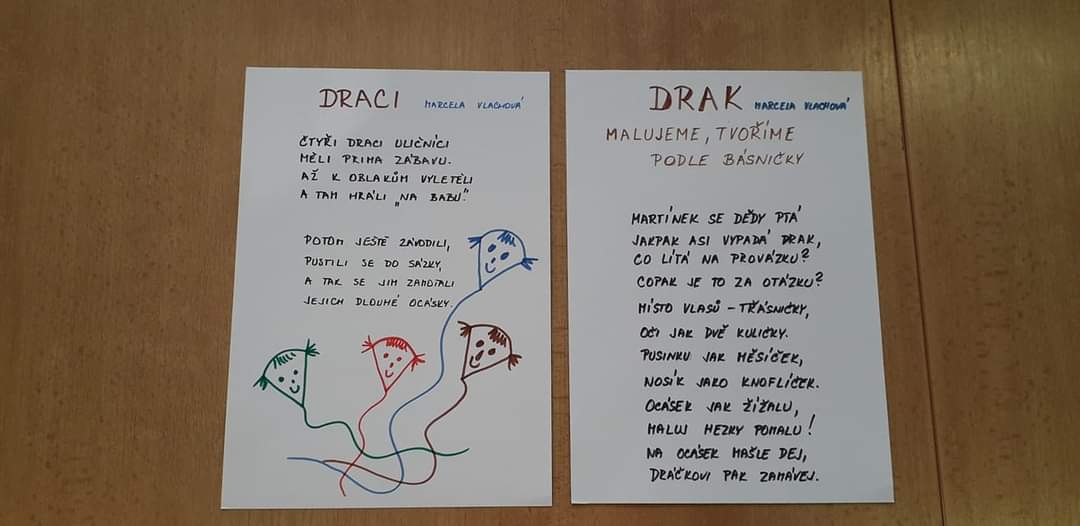 DRACI MARCELA VLACHOVÁ
ČTYŘI DRACI ULIČNÍCI
MĚLI PRIMA ZÁBAVU.
AŽ K OBLAKŮM VYLETĚLI
A TAM HRÁLI „NA BABU."
POTOM JEŠTĚ ZÁVODILI,
PUSTILI SE DO SÁZKY,
A TAK SE JIM ZAMOTALI
JEJICH DLOUHÉ OCÁSKY.
DRAK MARCELA VLACHOVÁ
MALUJEME, TVOŘÍME
PODLE BÁSNIČKY
MARTÍNEK SE DĚDY PTÁ
JAKPAK ASI VYPADÁ DRAK,
CO LÍTÁ NA PROVÁZKU?
COPAK JE TO ZA OTÁZKU?
MÍSTO VLASŮ - TŘÁSNIČKY,
OČI JAK DVĚ KULIČKY.
PUSINKU JAK MĚSÍČEK,
NOSÍK JAKO KNOFLÍČEK.
OCÁSEK JAK ŽÍŽALU,
MALUJ HEZKY POMALU!
NA OCÁSEK MAŠLE DEJ,
DRÁČKOVI PAK ZAMÁVEJ.